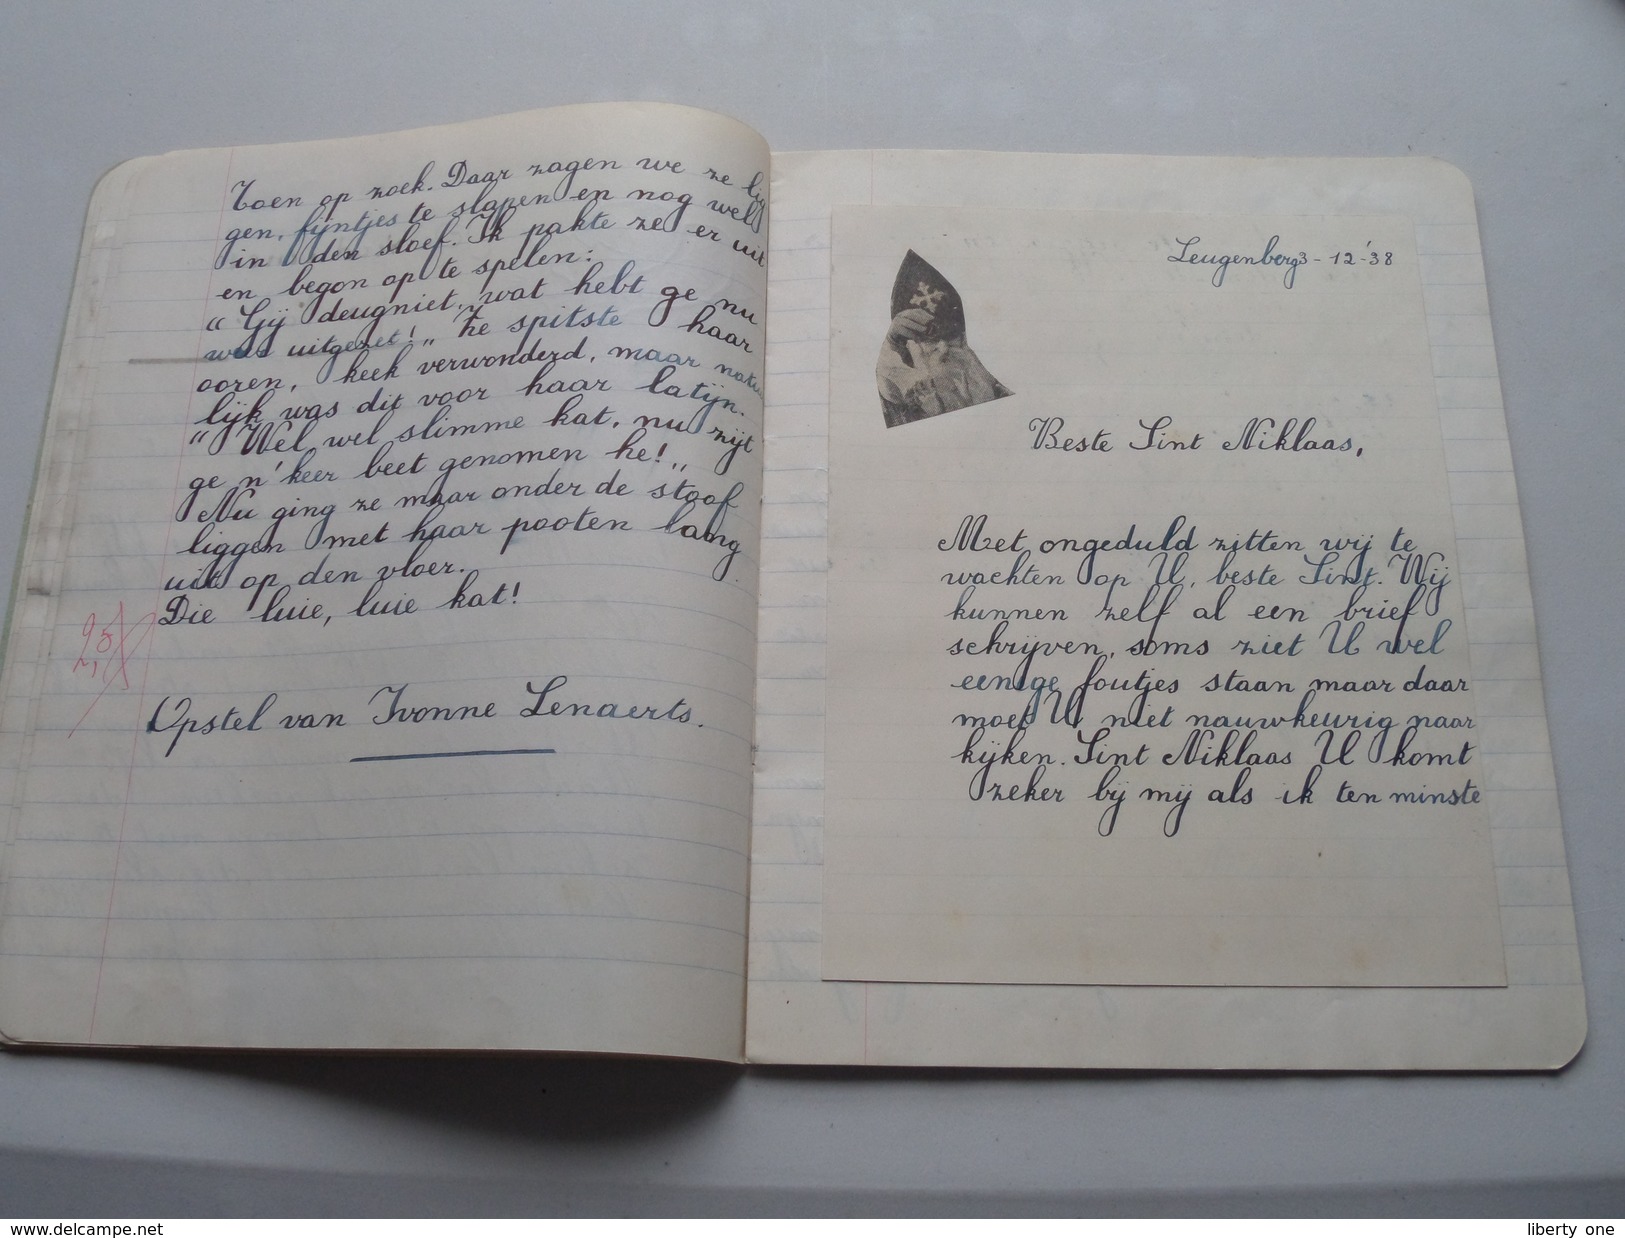 Toen op zoek. Daar zagen we ze lig
gen, fijntjes te slapen en nog wel
in den sloef. Ik pakte ze er uit
en begon op te spelen:
“Gij deugniet, wat hebt ge nu
weer uitgezet!„ Ze spitste haar
ooren, keek verwonderd, maar natuur
lijk was dit voor haar latijn.
“Wel, wel slimme kat, nu zijt
ge n' keer beet genomen he!„
Nu ging ze maar onder de stoof
liggen met haar pooten lang
uit op den vloer.
Die luie, luie kat!
Opstel van Yvonne Lenaerts.
Leugenberg 3-12-'38
Beste Sint Niklaas,
Met ongeduld zitten wij te
wachten op U, beste Sint. Wij
kunnen zelf al een brief
schrijven, soms ziet U wel
eenige foutjes staan maar daar
moet U niet nauwkeurig naar
kijken. Sint Niklaas U komt
zeker bij mij als ik ten minste
www.delcampe.net
liberty one